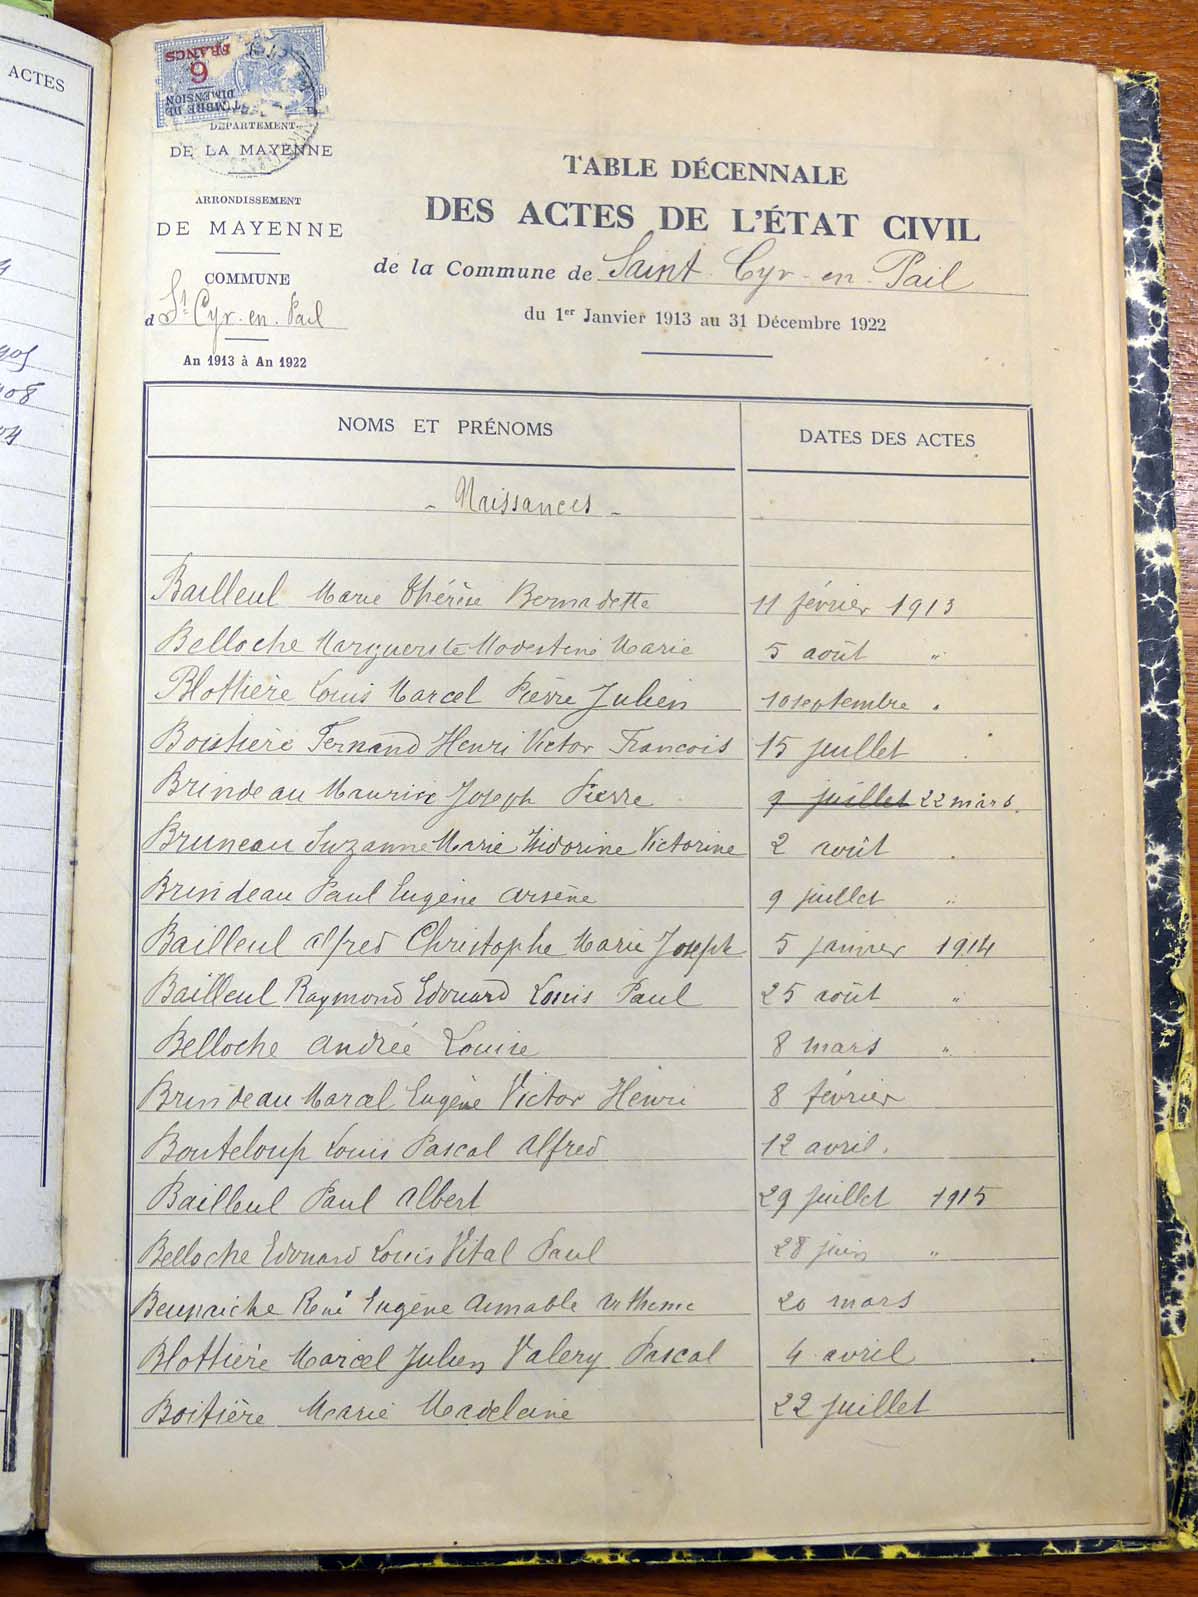 ACTES
FRANCS
6
TIMBRE DE
DIMENSION
DÉPARTEMENT
DE LA MAYENNE
ARRONDISSEMENT
DE MAYENNE
COMMUNE
d St Cyr-en-Pail
An 1913 à An 1922
TABLE DÉCENNALE
DES ACTES DE L'ÉTAT CIVIL
de la Commune de Saint-Cyr-en-Pail
du 1er Janvier 1913 au 31 Décembre 1922
NOMS ET PRÉNOMS DATES DES ACTES
- Naissances -
Bailleul Marie Thérèse Bernadette 11 février 1913
Belloche Marguerite Modestine Marie 5 août "
Blottière Louis Marcel Pierre Julien 10 septembre "
Boistière Fernand Henri Victor François 15 juillet
Brindeau Maurice Joseph Pierre 9 juillet 22 mars
Bruneau Suzanne Marie Isidorine Victorine 2 août
Brindeau Paul Eugène Arsène 9 juillet "
Bailleul Alfred Christophe Marie Joseph 5 janvier 1914
Bailleul Raymond Edouard Louis Paul 25 août "
Belloche Andrée Louise 8 mars "
Brindeau Marcel Eugène Victor Henri 8 février
Bouteloup Louis Pascal Alfred 12 avril.
Bailleul Paul Albert 29 juillet 1915
Belloche Edouard Louis Vital Paul 28 juin "
René Eugène Aimable 20 mars
Blottière Marcel Julien Valery Pascal 4 avril
Boitière Marie Madeleine 22 juillet